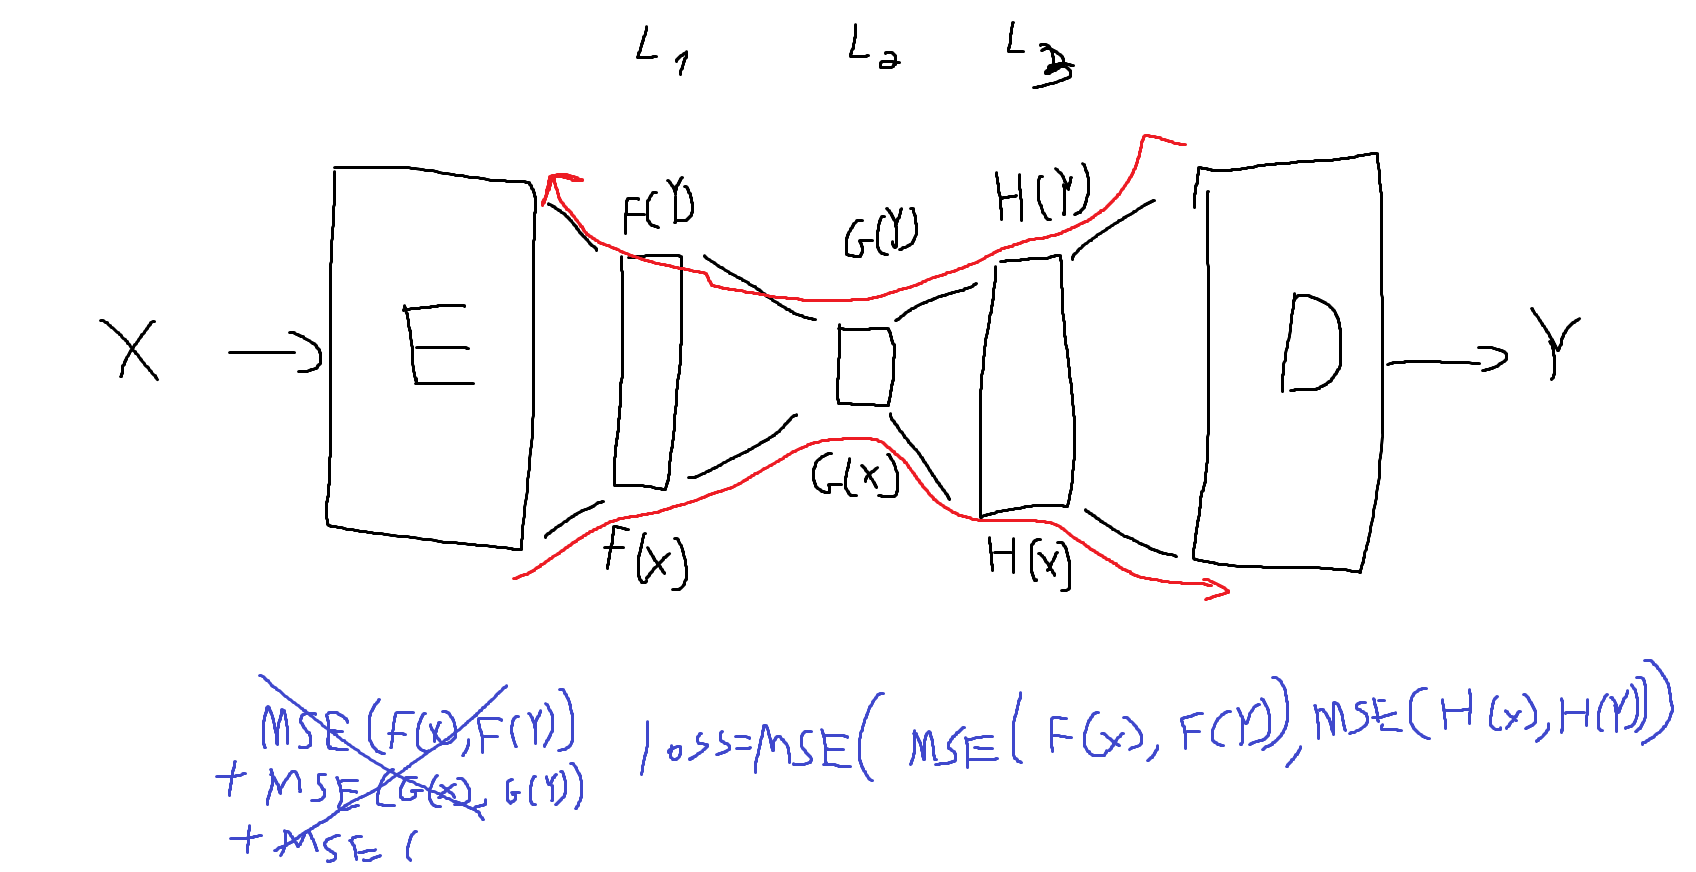 L1 L2 L3
F(Y) G(Y) H(Y)
X E D Y
F(X) G(X) H(X)
MSE(F(X),F(Y))
+ MSE(G(X),G(Y))
+ MSE(
loss=MSE( MSE(F(x),F(Y)),MSE(H(x),H(Y)))